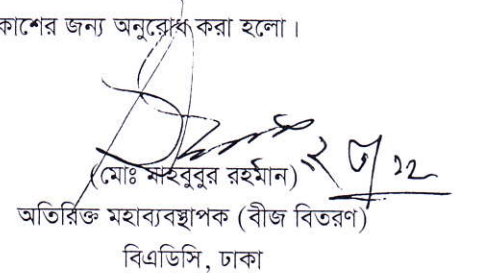 কাশের জন্য অনুরোধ করা হলো।
(মোঃ মাহবুবুর রহমান)
অতিরিক্ত মহাব্যবস্থাপক (বীজ বিতরণ)
বিএডিসি, ঢাকা